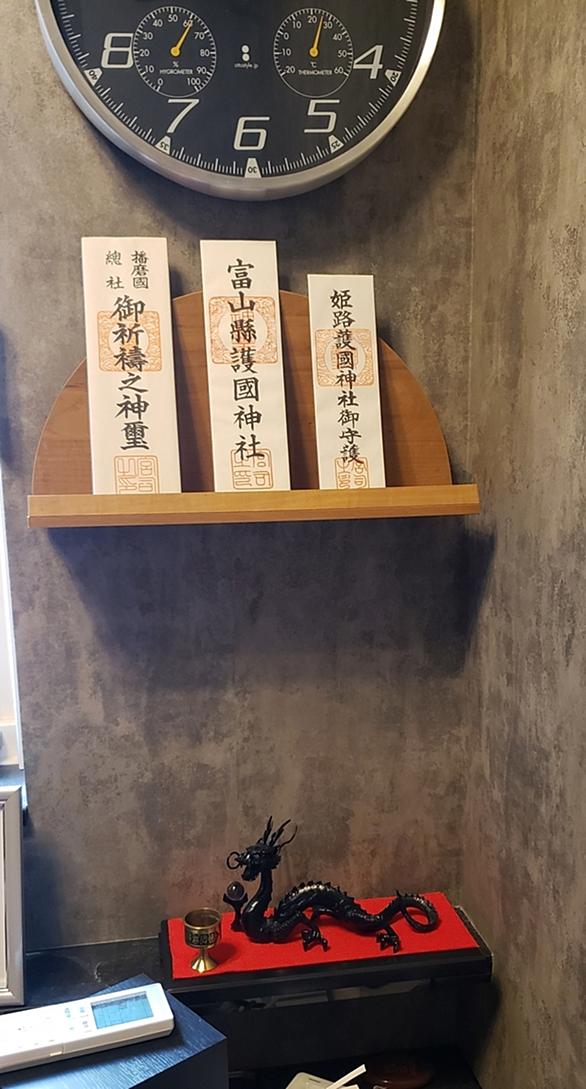 8
7
6
5
4
40
50
60
30
70
20
80
10
90
0
100
%
HYGROMETER
10
20
30
0
40
10
50
20
60
℃
THERMOMETER
35
30
25
播磨國
總社
御祈禱之神璽
富山縣護國神社
姫路護國神社御守護